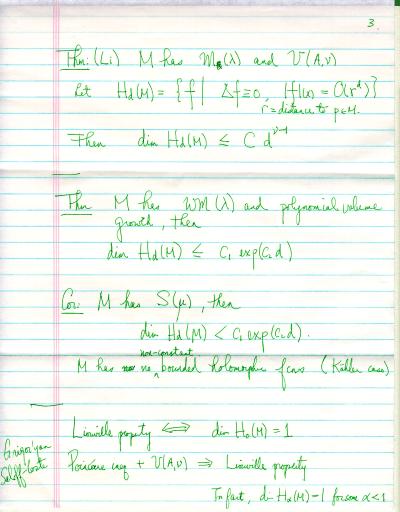 3.
Thm: (Li) M has M(λ) and V(A,ν)
Let Hd(M) = { f | Δf ≡ 0, |f|(x) = O(r^d) }
r = distance to p∈M.
Then dim Hd(M) ≤ C d^{ν-1}
Thm M has WM(λ) and polynomial volume
growth, then
dim Hd(M) ≤ C₁ exp(C₂ d)
Cor: M has S(μ), then
dim Hd(M) < C₁ exp(C₂ d).
non-constant
M has no bounded holomorphic fcns (Kähler case)
Liouville property ⟺ dim H₀(M) = 1
Grigor'yan
Saloff-Coste
Poincare ineq + V(A,ν) ⟹ Liouville property
In fact, dim Hα(M) = 1 for some α < 1